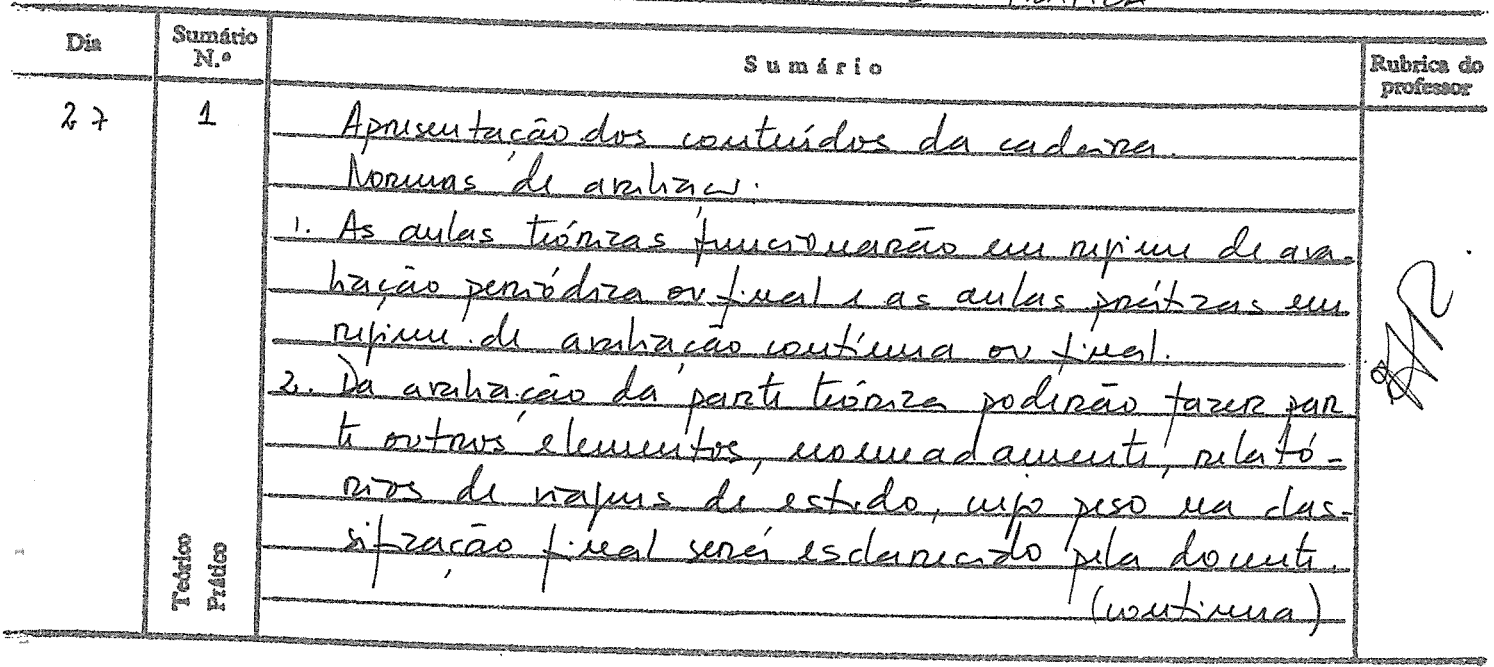 Dia
Sumário N.º
Sumário
Rubrica do professor
27
1
Apresentação dos conteúdos da cadeira.
Normas de avaliação.
1. As aulas teóricas funcionarão em regime de ava-
liação periódica ou final e as aulas práticas em
regime de avaliação contínua ou final.
2. Da avaliação da parte teórica poderão fazer par
te outros elementos, nomeadamente, relató-
rios de viagens de estudo, cujo peso na clas-
sificação final será esclarecido pela docente.
(continua)
Teórico
Prático